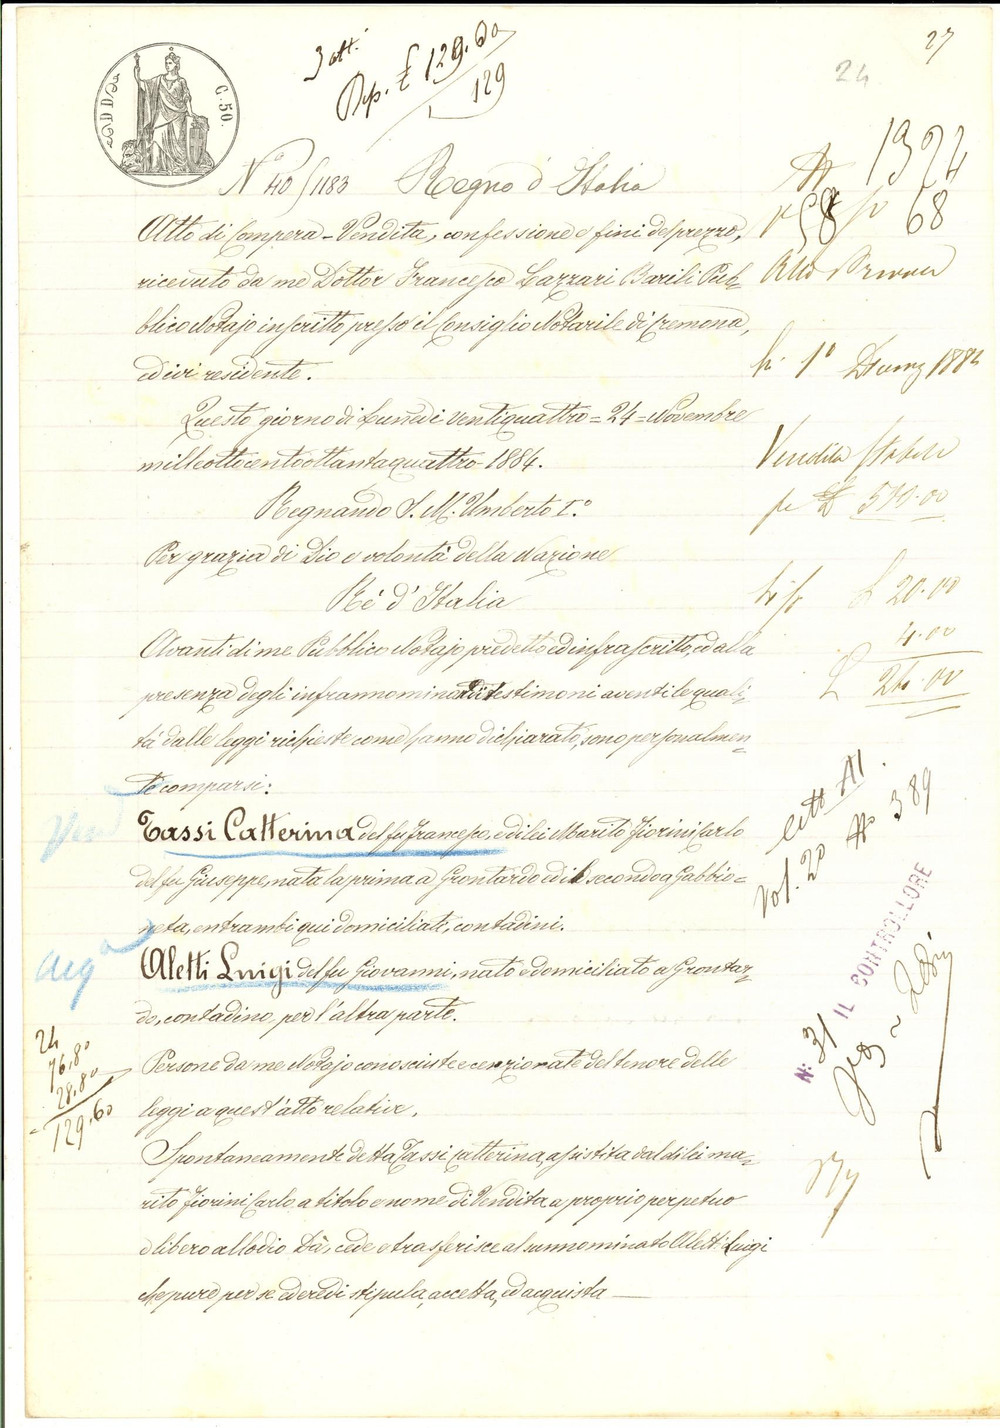 27
24
3 att.
Rep. £ 129.60
129
C. 50.
N° 40/1183 Regno d'Italia
Atto di Compera-Vendita, confessione e fini del prezzo,
ricevuto da me Dottor Francesco Lazzari Barili Pub-
blico Notajo inscritto presso il Consiglio Notarile di Cremona,
ed ivi residente.
Questo giorno di Lunedi ventiquattro = 24 = Novembre
milleottocentottantaquattro 1884.
Regnando S. M. Umberto I.°
Per grazia di Dio e volontà della Nazione
Ré d'Italia
Avanti di me Pubblico Notajo predetto ed infrascritto, ed alla
presenza degli infrannominandi testimoni aventi le quali-
tá dalle leggi richieste come hanno dichiarato, sono personalmen-
te comparsi:
Tassi Catterina del fu Francesco, e di lei Marito Fiorini Carlo
del fu Giuseppe, nata la prima a Grontardo ed il secondo a Gabbio=
neta, entrambi qui domiciliati, contadini.
Aletti Luigi del fu Giovanni, nato e domiciliato a Grontar-
do, contadino, per l'altra parte.
Persone da me Notajo conosciute e cerziorate del tenore delle
leggi a quest'atto relative.
Spontaneamente detta Tassi Catterina, assistita dal di lei ma-
rito Fiorini Carlo a titolo e nome di Vendita a proprio perpetuo
e libero allodio dà, cede e trasferisce al sunnominato Aletti Luigi
che pure per se ed eredi stipula, accetta, ed acquista
1324
58 68
Atti
1°
1884
Vendita stabili
per £ 510.00
£ 20.00
4.00
£ 24.00
Vol. 20 N° 389
N: 31 IL CONTROLLORE
Acq
24
76.80
28.80
129.60